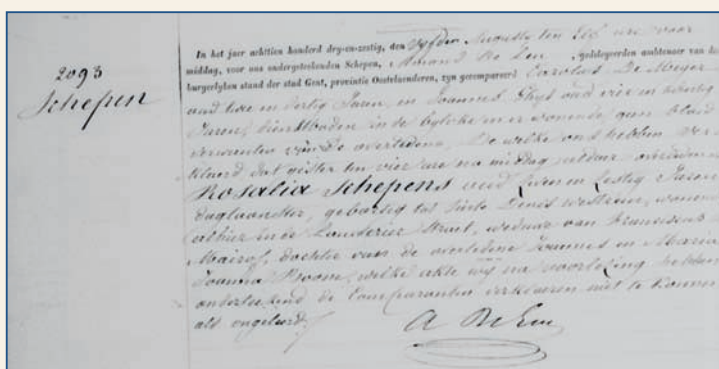 2093
Schepen
In het jaer achttien honderd dry-en-zestig, den vyfden Augusty ten elf ure voor
middag, voor ons ondergeteekenden Schepen, Amand De Len, gedelegeerden ambtenaer van den
burgerlyken stand der stad Gent, provintie Oostvlaenderen, zyn gecompareerd Carolus De Meyer
oud twee en dertig Jaren, en Joannes Ghys oud vier en
Jaren, dienstboden in de byloke en er wonende, geen bloed
verwanten van de overledene, De welke ons hebben ver
klaerd dat gister ten vier ure na middag overleden is
Rosalia Schepens oud zeven en zestig Jaren
dagloonster, geboortig tot Sinte Denis westrem, wonende
alhier in de straet, weduwe van Franciscus
dochter van de overledene Joannes en Maria
Joanna Boone, welke akte wy na voorlezing hebben
onderteekend de Comparanten verklaeren niet te konnen
als ongeleerd.